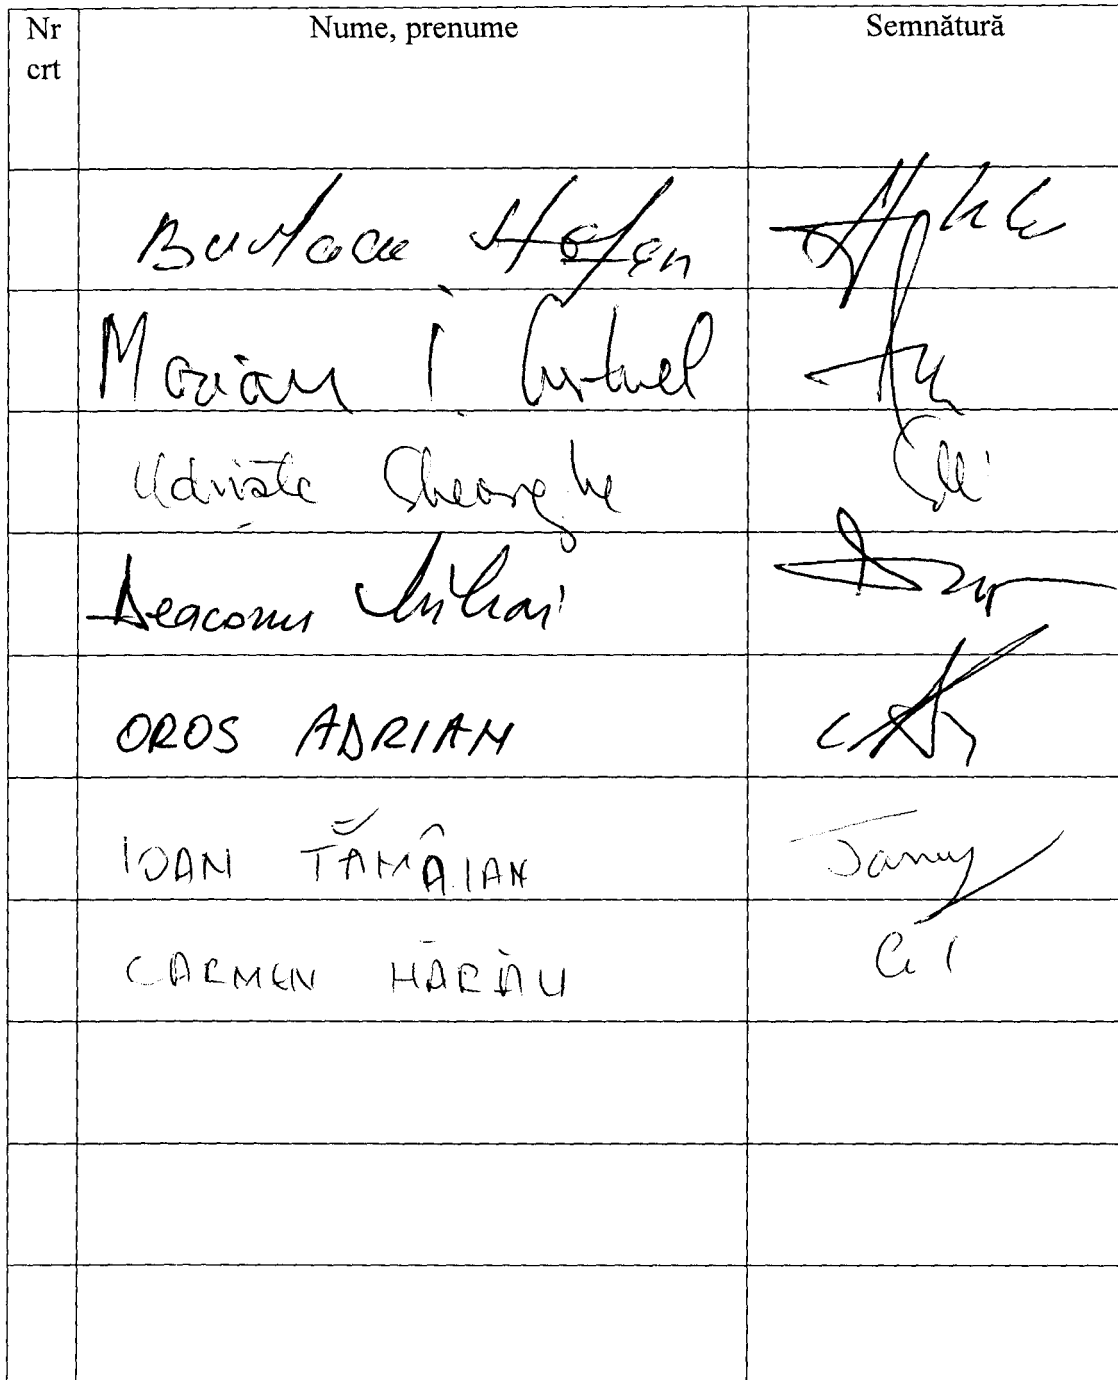 Nr crt Nume, prenume Semnătură
Burlacu Ștefan
Marian I. Cristinel
Udriște Gheorghe
Deaconu Mihai
OROS ADRIAN
IOAN TĂMÂIAN
CARMEN HĂRĂU